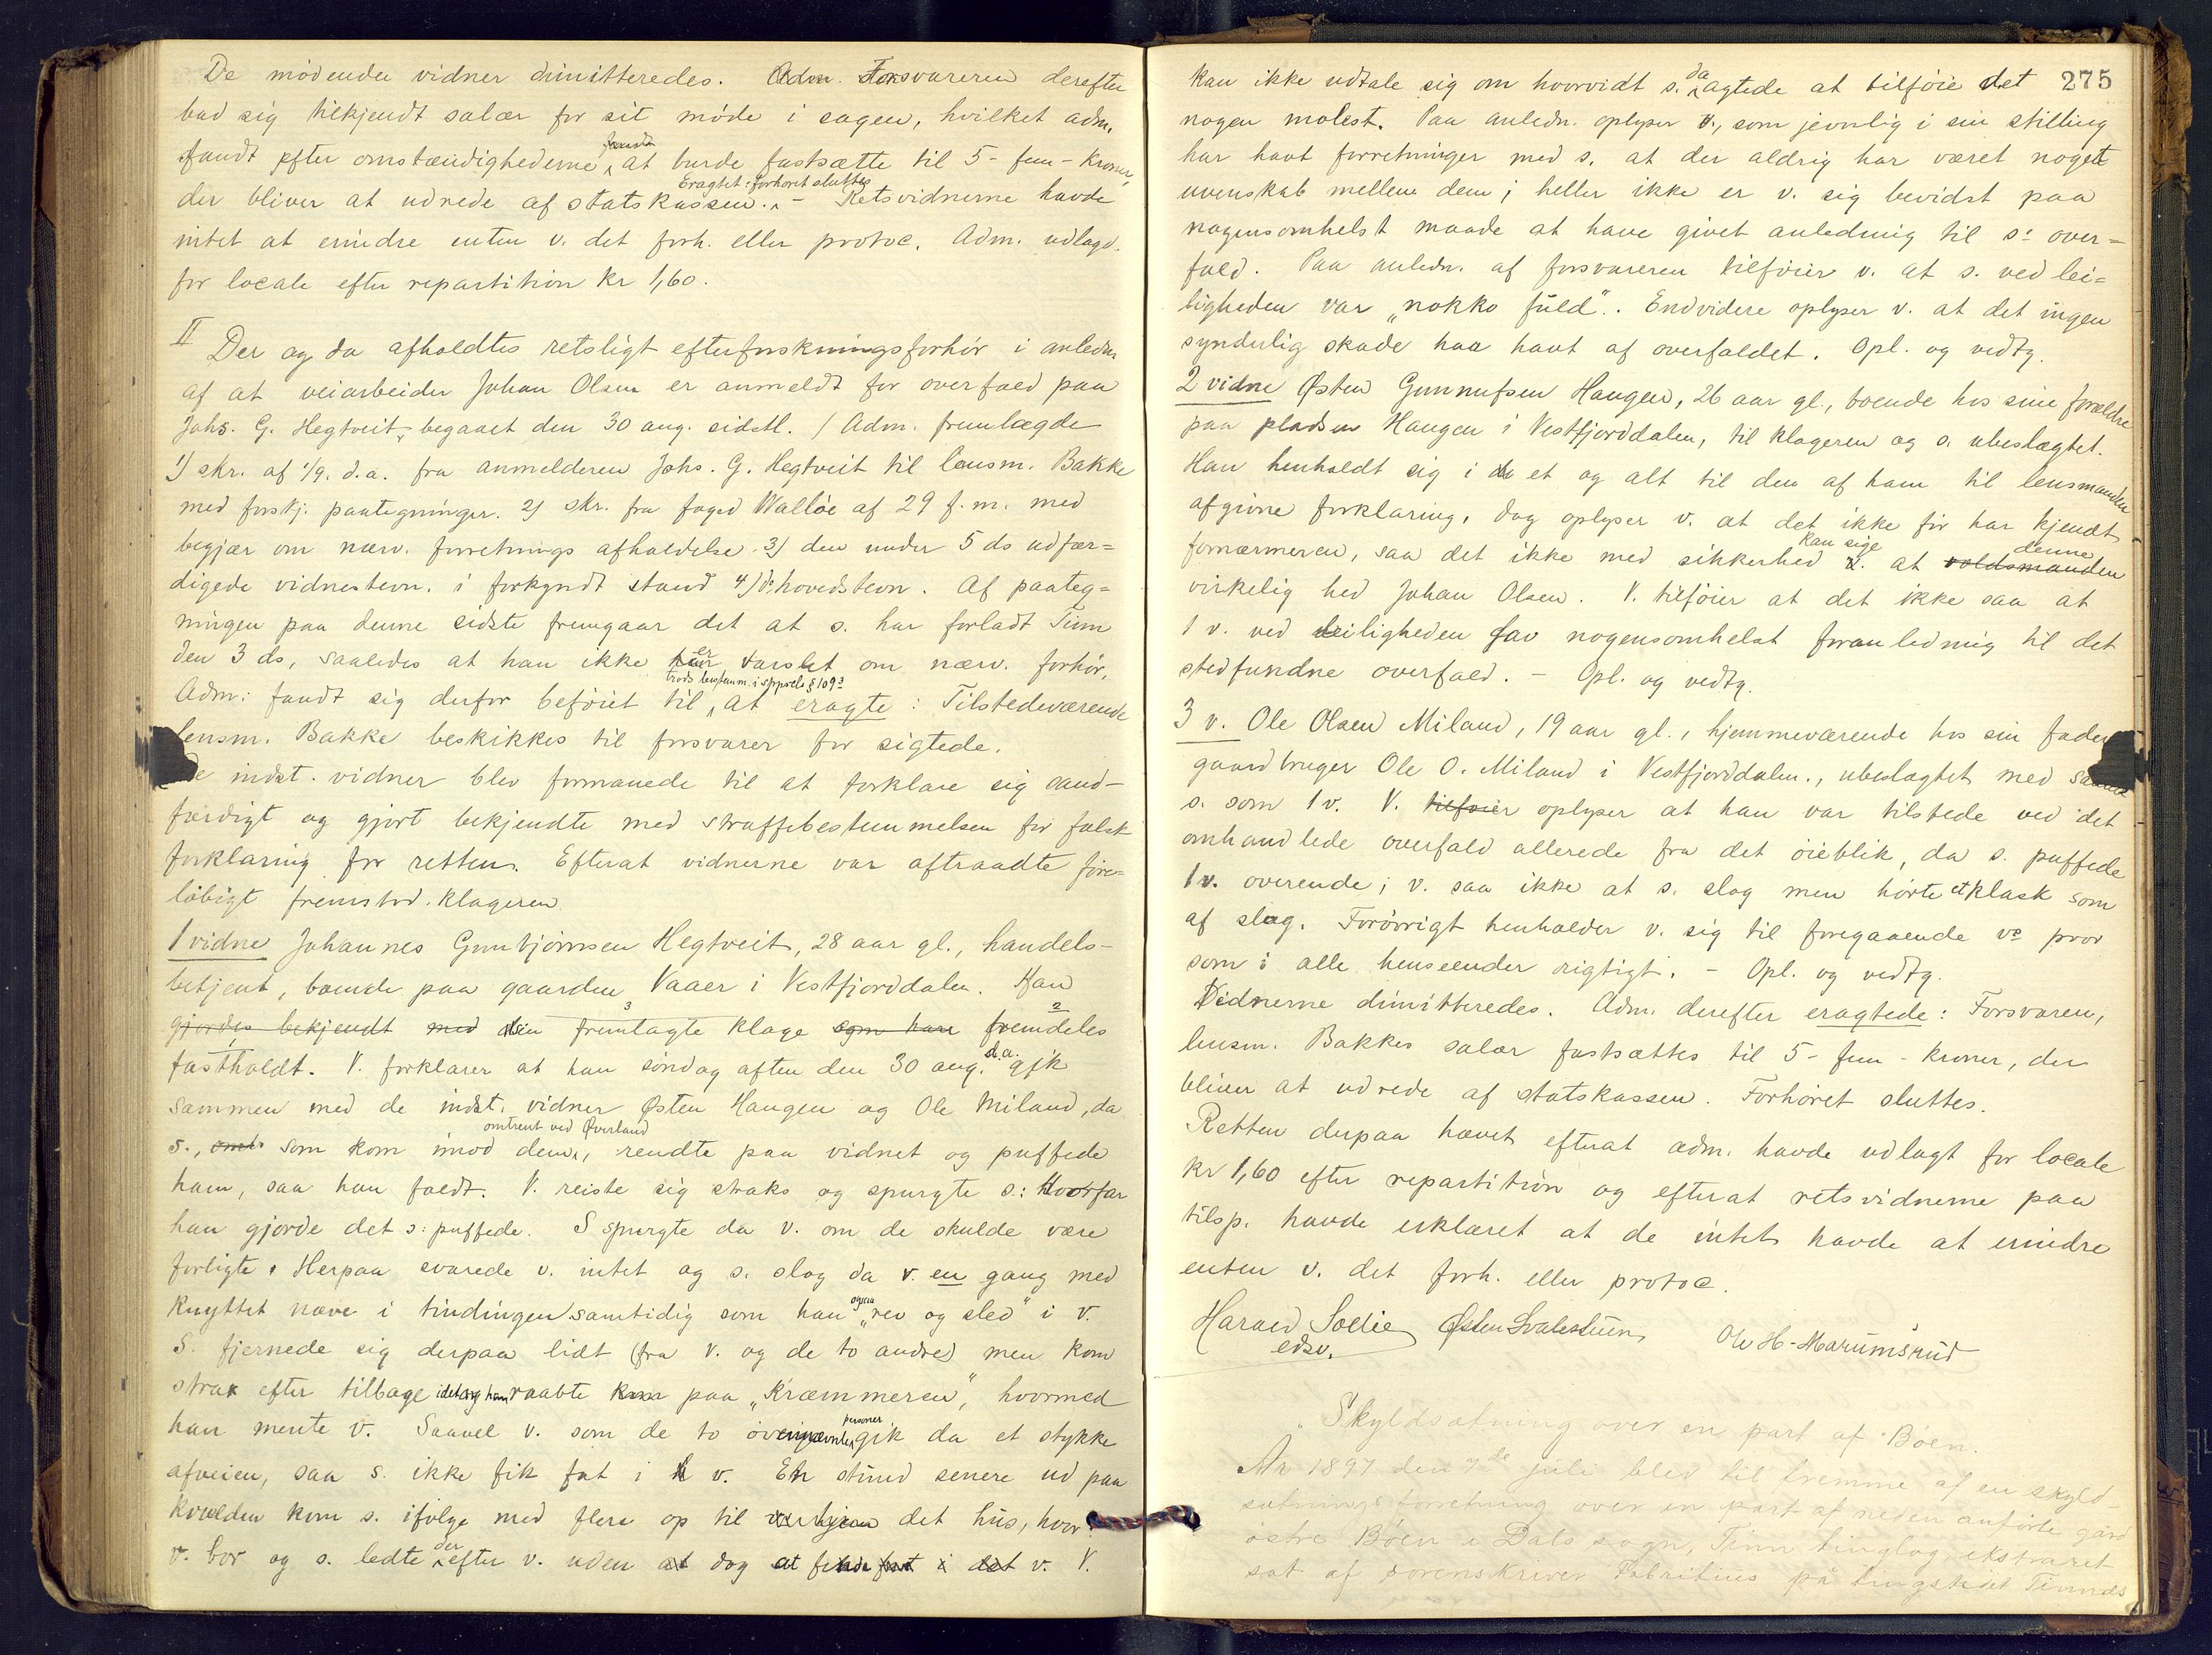 De mødende vidner dimitteredes. Adm. Forsvareren derefter
bad sig tilkjendt salær for sit møde i sagen, hvilket adm.
fandt efter omstændighederne at burde fastsætte til 5 - fem - kroner,
Eragtet: forhøret sluttes
der bliver at udrede af statskassen. - Retsvidnerne havde
intet at erindre enten v. det forh. eller protoc. Adm. udlagd.
for locale efter repartition kr 1,60.
II Der og da afholdtes retsligt efterforskningsforhør i anledn.
af at veiarbeider Johan Olsen er anmeldt for overfald paa
Johs. G. Hegtveit, begaaet den 30 aug. sidstl. / Adm. fremlægde
1) skr. af 1/9. d.a. fra anmelderen Johs. G. Hegtveit til lensm. Bakke
med forskj. paategninger. 2) skr. fra foged Walløe af 29 f.m. med
begjær om nærv. forretnings afholdelse 3) den under 5 ds udfær=
digede vidnestevn. i forkyndt stand 4) do hovedstevn. Af paateg=
ningen paa denne sidste fremgaar det at s. har forladt Tinn
den 3 ds, saaledes at han ikke er varslet om nærv. forhør,
trods bestemm. i strprcls § 109 3
Adm: fandt sig derfor beføiet til at eragte: Tilstedeværende
lensm. Bakke beskikkes til forsvarer for sigtede.
De indst. vidner blev formanede til at forklare sig sand-
færdigt og gjort bekjendte med straffebestemmelsen for falsk
forklaring for retten. Efterat vidnerne var aftraadte fore=
løbigt fremstod klageren
1 vidne Johannes Gunbjørnsen Hegtveit, 28 aar gl., handels-
betjent, boende paa gaarden Vaaer i Vestfjorddalen. Han
gjordes bekjendt med sin fremlagte klage som han fremdeles
fastholdt. V. forklarer at han søndag aften den 30 aug. d.a. gik
sammen med de indst. vidner Østen Haugen og Ole Miland, da
omtrent ved Øverland
s., omt. som kom imod dem, rendte paa vidnet og puffede
ham, saa han faldt. V. reiste sig straks og spurgte s: hvorfor
han gjorde det s: puffede. S spurgte da v. om de skulde være
forligte. Herpaa svarede v. intet og s. slog da v. en gang med
knyttet næve i tindingen samtidig som han ogsaa "rev og sled" i v.
S. fjernede sig derpaa lidt (fra v. og de to andre) men kom
strax efter tilbage idet og han raabte paa "Kræmmeren", hvormed
han mente v. Saavel v. som de to øvrignævnte personer gik da et stykke
afveien, saa s. ikke fik fat i v. En stund senere ud paa
kvælden kom s. ifølge med flere op til det hus, hvor
v. bor og s. ledte der efter v. uden dog at finde v. V.
275
kan ikke udtale sig om hvorvidt s. da agtede at tilføie det
nogen molest. Paa anledn. oplyser v., som jevnlig i sin stilling
har havt forretninger med s. at der aldrig har været noget
uvenskab mellem dem; heller ikke er v. sig bevidst paa
nogensomhelst maade at have givet anledning til s' over=
fald. Paa anledn. af forsvareren tilføier v. at s. ved lei=
ligheden var "nokko fuld". Endvidere oplyser v. at det ingen
synderlig skade har havt af overfaldet. Opl. og vedtg.
2 vidne Østen Gunnufsen Haugen, 26 aar gl., boende hos sine forældre
paa pladsen Haugen i Vestfjorddalen, til klageren og s. ubeslægtet.
Han henholdt sig i et og alt til den af ham til lensmanden
afgivne forklaring, dog oplyser v. at det ikke før har kjendt
fornærmeren, saa det ikke med sikkerhed kan sige at voldsmanden denne
virkelig hed Johan Olsen. V. tilføier at det ikke saa at
1 v. ved leiligheden gav nogensomhelst foranledning til det
stedfundne overfald. - Opl. og vedtg.
3 v. Ole Olsen Miland, 19 aar gl., hjemmeværende hos sin fader
gaardbruger Ole O. Miland i Vestfjorddalen., ubeslægtet med saavel
s. som 1 v. V. tilføier oplyser at han var tilstede ved det
omhandlede overfald allerede fra det øieblik, da s. puffede
1 v. overende; v. saa ikke at s. slog men hørte et klask som
af slag. Forøvrigt henholder v. sig til foregaaende vs prov
som i alle henseender rigtigt. - Opl. og vedtg.
Vidnerne dimitteredes. Adm. derefter eragtede: Forsvaren,
lensm. Bakkes salær fastsættes til 5 - fem - kroner, der
bliver at udrede af statskassen. Forhøret sluttes.
Retten derpaa hævet efterat adm. havde udlagt for locale
kr 1,60 efter repartition og efterat retsvidnerne paa
tilsp. havde erklæret at de intet havde at erindre
enten v. det forh. eller protoc.
Harald Sollie Østen Svalestuen Ole H. Marumsrud
edsv.
Skyldsætning over en part af Bøen.
År 1897 den 7de juli blev til fremme af en skyld-
sætnings forretning over en part af neden anførte gård
østre Bøen i Dals sogn, Tinn tinglag ekstraret
sat af sorenskriver Fabritius på tingstedet Tinnes